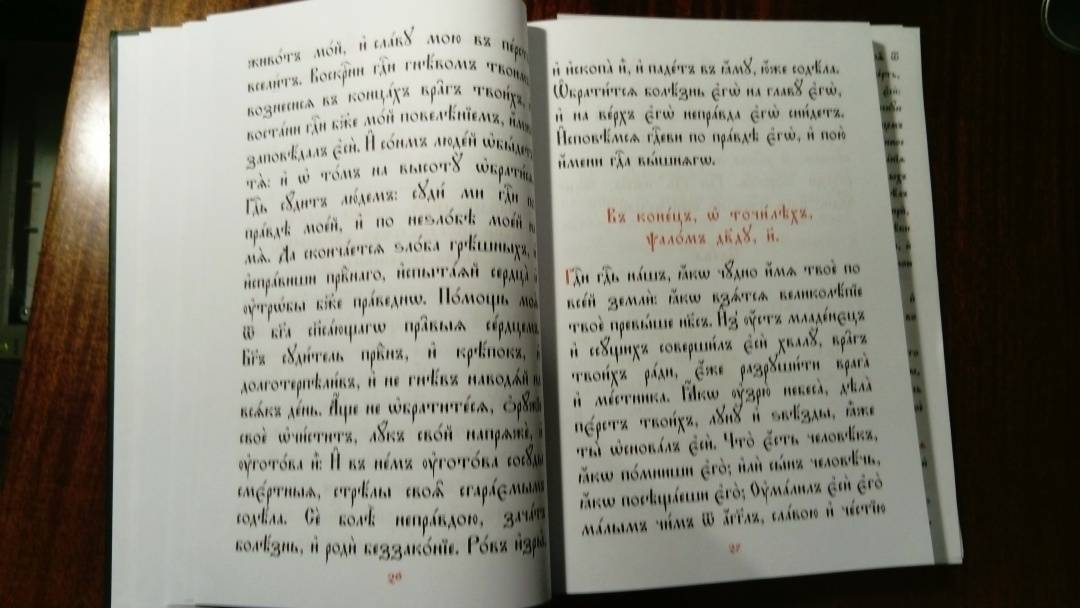 живо́тъ мо́й, и҆ сла́вꙋ мою̀ въ пе́рсть
всели́тъ. Воскрⷭ҇нѝ гдⷭ҇и гнѣ́вомъ твои́мъ,
вознеси́сѧ въ конца́хъ вра̑гъ твои́хъ,
воста́ни гдⷭ҇и бж҃е мо́й повелѣ́нїемъ, и҆́мже
заповѣ́далъ є҆сѝ. И҆ со́нмъ люде́й ѡ҆бы́детъ
тѧ̀: и҆ ѡ҆ то́мъ на высотꙋ̀ ѡ҆брати́сѧ.
Гдⷭ҇ь сꙋ́дитъ лю́демъ: сꙋди́ ми гдⷭ҇и по
пра́вдѣ мое́й, и҆ по неѕло́бѣ мое́й на
мѧ̀. Да сконча́етсѧ ѕло́ба грѣ́шныхъ, и҆
и҆спра́виши првⷣнаго, и҆спыта́ѧй сердца̀ и҆
ᲂу҆трѡ́бы бж҃е пра́веднѡ. По́мощь моѧ̀
ѿ бг҃а спⷭ҇са́ющагѡ пра̑выѧ се́рдцемъ.
Бг҃ъ сꙋди́тель првⷣнъ, и҆ крѣ́покъ, и҆
долготерпѣли́въ, и҆ не гнѣ́въ наводѧ́й на
всѧ́къ де́нь. А҆́ще не ѡ҆братите́сѧ, ѻ҆рꙋ́жїе
своѐ ѡ҆чи́ститъ, лꙋ́къ сво́й напрѧжѐ, и҆
ᲂу҆гото́ва и҆̀: И҆ въ не́мъ ᲂу҆гото́ва сосꙋ́ды
сме́ртныѧ, стрѣ́лы своѧ̑ сгара́ємымъ
содѣ́ла. Сѐ болѣ̀ непра́вдою, зача́тъ
болѣ́знь, и҆ родѝ беззако́нїе. Ро́въ и҆зры̀,
26
и҆ и҆скопа̀ и҆̀, и҆ паде́тъ въ ꙗ҆́мꙋ, ю҆́же содѣ́ла.
Ѡ҆брати́тсѧ болѣ́знь є҆гѡ̀ на главꙋ̀ є҆гѡ̀,
и҆ на ве́рхъ є҆гѡ̀ непра́вда є҆гѡ̀ сни́детъ.
И҆сповѣ́мсѧ гдⷭ҇еви по пра́вдѣ є҆гѡ̀, и҆ пою̀
и҆́мени гдⷭ҇а вы́шнѧгѡ.
Въ коне́цъ, ѡ҆ точи́лѣхъ,
ѱало́мъ дв҃дꙋ, и҃.
Гдⷭ҇и гдⷭ҇ь на́шъ, ꙗ҆́кѡ чꙋ́дно и҆́мѧ твоѐ по
все́й землѝ: ꙗ҆́кѡ взѧ́тсѧ великолѣ́пїе
твоѐ превы́ше нб҃съ. И҆з̾ ᲂу҆́стъ младе́нєцъ
и҆ ссꙋ́щихъ соверши́лъ є҆сѝ хвалꙋ̀, вра̑гъ
твои́хъ ра́ди, є҆́же разрꙋши́ти врага̀
и҆ ме́стника. Ꙗ҆́кѡ ᲂу҆зрю̀ небеса̀, дѣла̀
пе́рстъ твои́хъ, лꙋнꙋ̀ и҆ ѕвѣ́зды, ꙗ҆̀же
ты̀ ѡ҆снова́лъ є҆сѝ. Что̀ є҆́сть человѣ́къ,
ꙗ҆́кѡ по́мниши є҆го̀; и҆лѝ сы́нъ человѣ́чь,
ꙗ҆́кѡ посѣща́еши є҆го̀; Ѹ҆ма́лилъ є҆сѝ є҆го̀
ма́лымъ чи́мъ ѿ а҆́гг҃лъ, сла́вою и҆ че́стїю
27